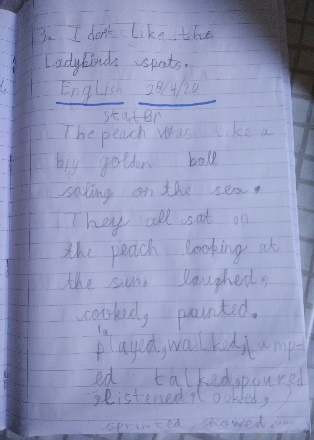 3. I dont like the
Ladybirds spots.
English 28/4/20
stater
The peach was like a
big golden ball
saling on the sea.
They all sat on
the peach looking at
the sun. laughed,
cooked, painted.
played, walked, jump-
ed talked, poured
, listened, looked,
sprinted, showed